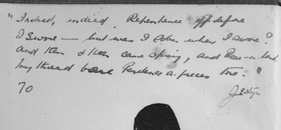 "Indeed, indeed, Repentance oft before
I swore — but was I sober when I swore?
And then & then came Spring, and Rose-in-hand
my thread-bare Penitence a-pieces tore."
70